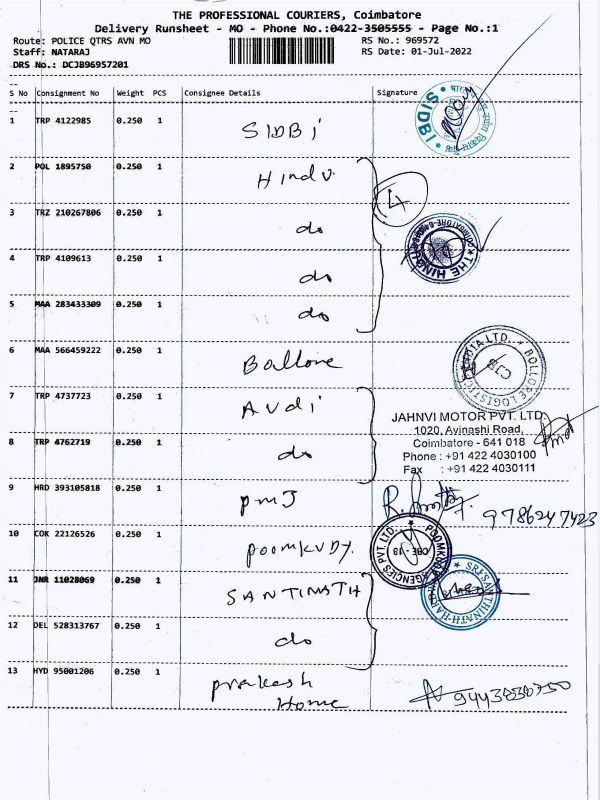 THE PROFESSIONAL COURIERS, Coimbatore
Delivery Runsheet - MO - Phone No.:0422-3505555 - Page No.:1
Route: POLICE QTRS AVN MO
RS No.: 969572
Staff: NATARAJ
RS Date: 01-Jul-2022
DRS No.: DCJB96957201
S No Consignment No Weight PCS Consignee Details Signature
1 TRP 4122985 0.250 1 SIDBi
SIDBI
2 POL 1895750 0.250 1 Hindu
4
3 TRZ 210267806 0.250 1 do
THE HINDU
4 TRP 4109613 0.250 1 do
5 MAA 283433309 0.250 1 do
6 MAA 566459222 0.250 1 Bollore
BOLLORE LOGISTICS INDIA LTD.
CJB
7 TRP 4737723 0.250 1 AUDi
JAHNVI MOTOR PVT. LTD.
1020, Avinashi Road,
Coimbatore - 641 018
8 TRP 4762719 0.250 1 do
Phone : +91 422 4030100
Fax : +91 422 4030111
9 HRD 393105818 0.250 1 PMJ
9786247423
10 COK 22126526 0.250 1 POOMKUDY
AGENCIES PVT. LTD.
CBE - 18
11 JNR 11028069 0.250 1 SANTINATH
12 DEL 528313767 0.250 1 do
13 HYD 95001206 0.250 1 prakash
Home